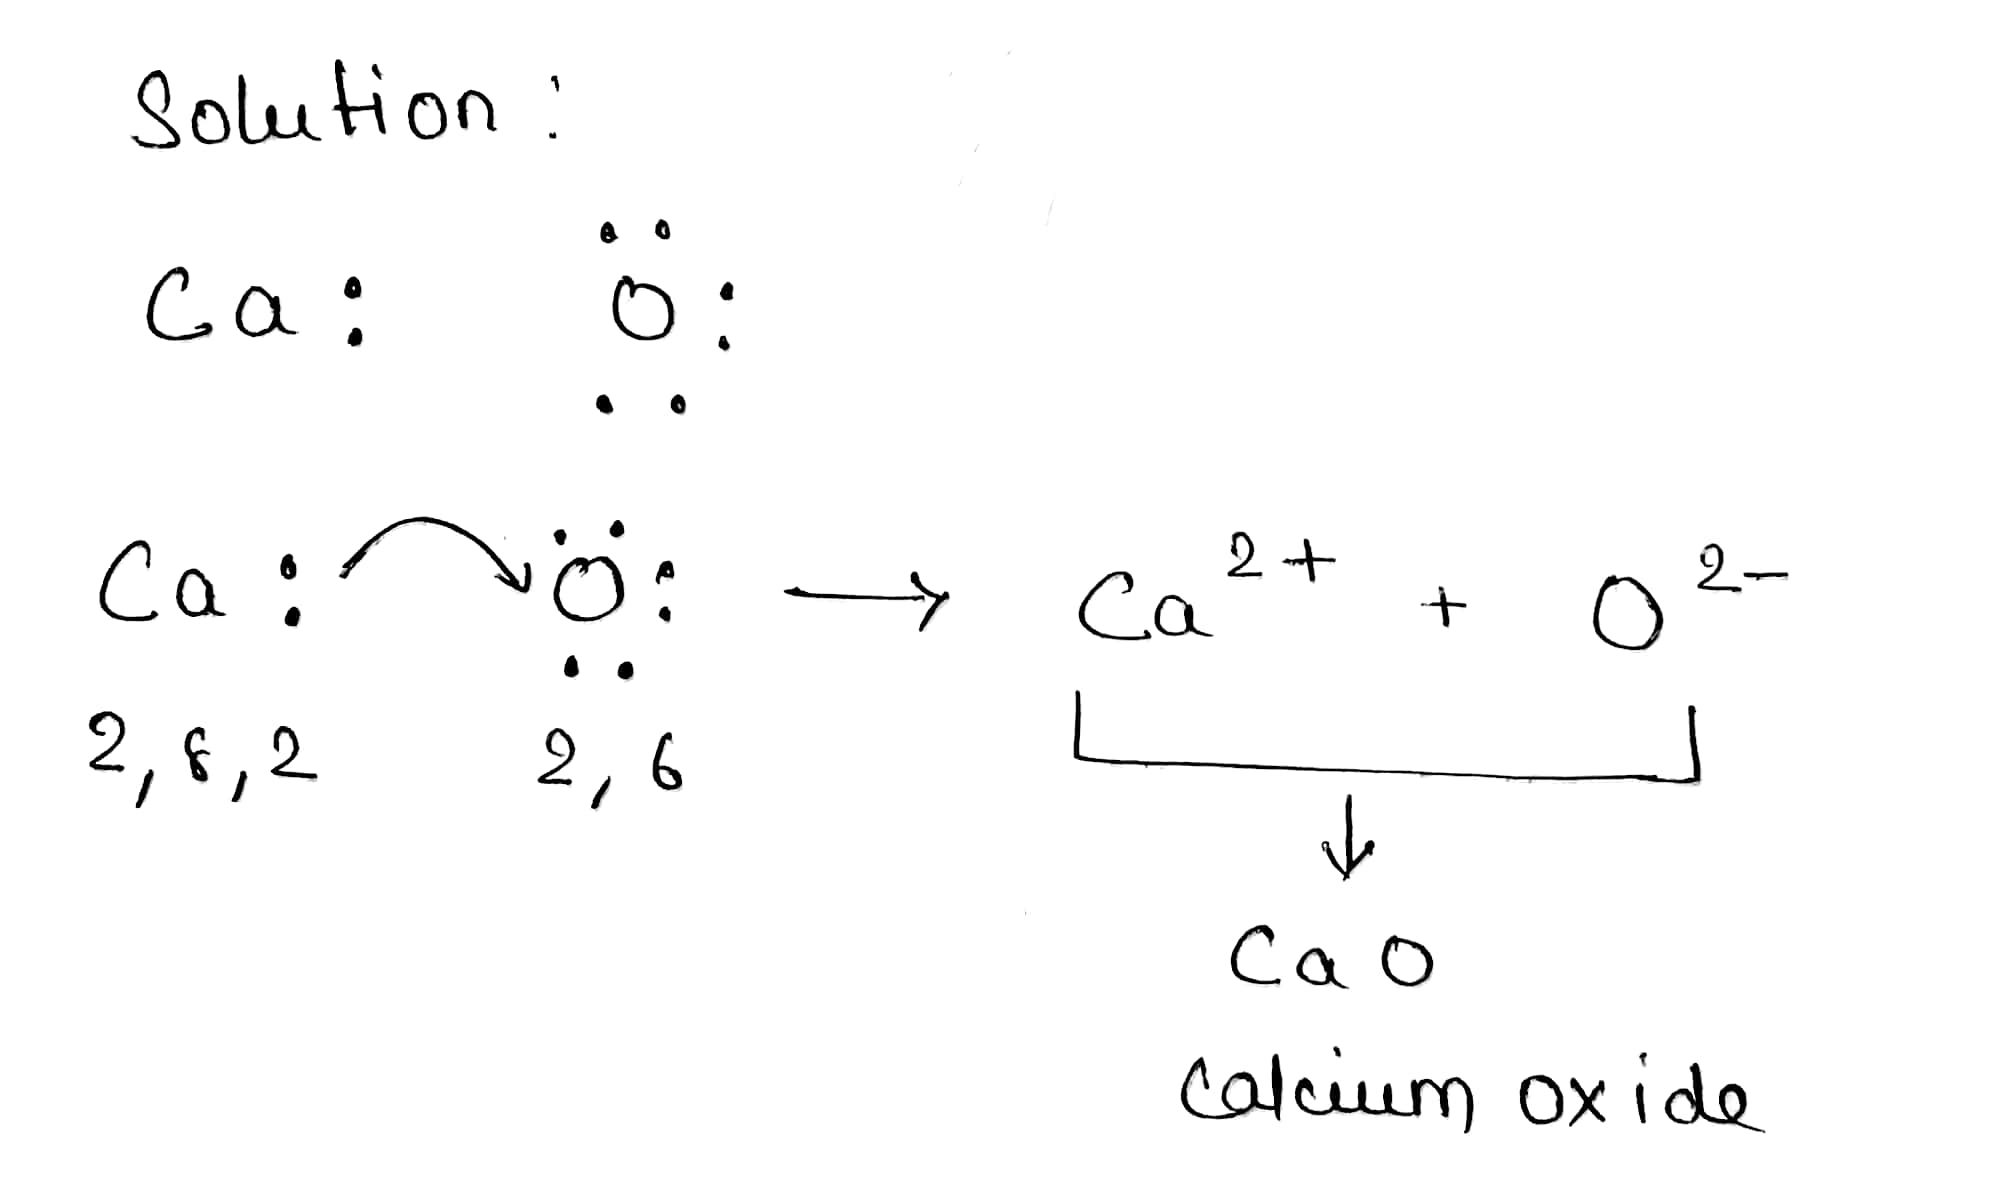 Solution :
Ca : Ö :
Ca : Ö : → Ca²⁺ + O²⁻
2,8,2 2,6
↓
CaO
Calcium oxide